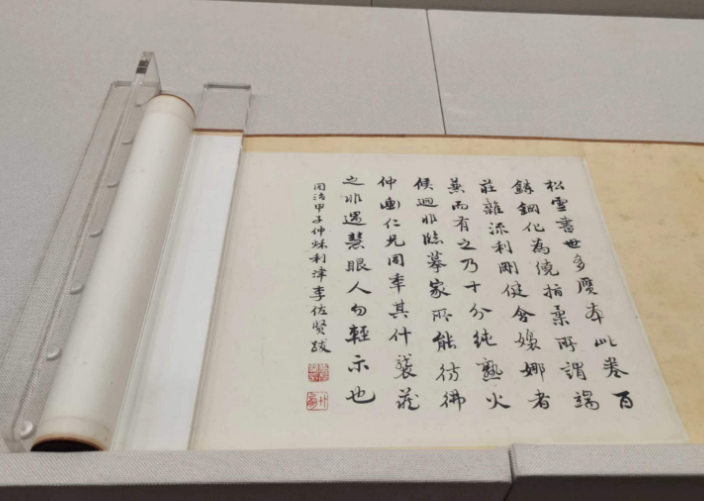 松雪書世多贋本此卷百
鍊鋼化為繞指柔所謂端
莊雜流利剛健含嬝娜者
兼而有之乃十分純熟火
候迥非臨摹家所能彷彿
仲仁兄同年其什襲藏
之非遇慧眼人勿輕示也
同治甲子仲秋利津李佐賢跋